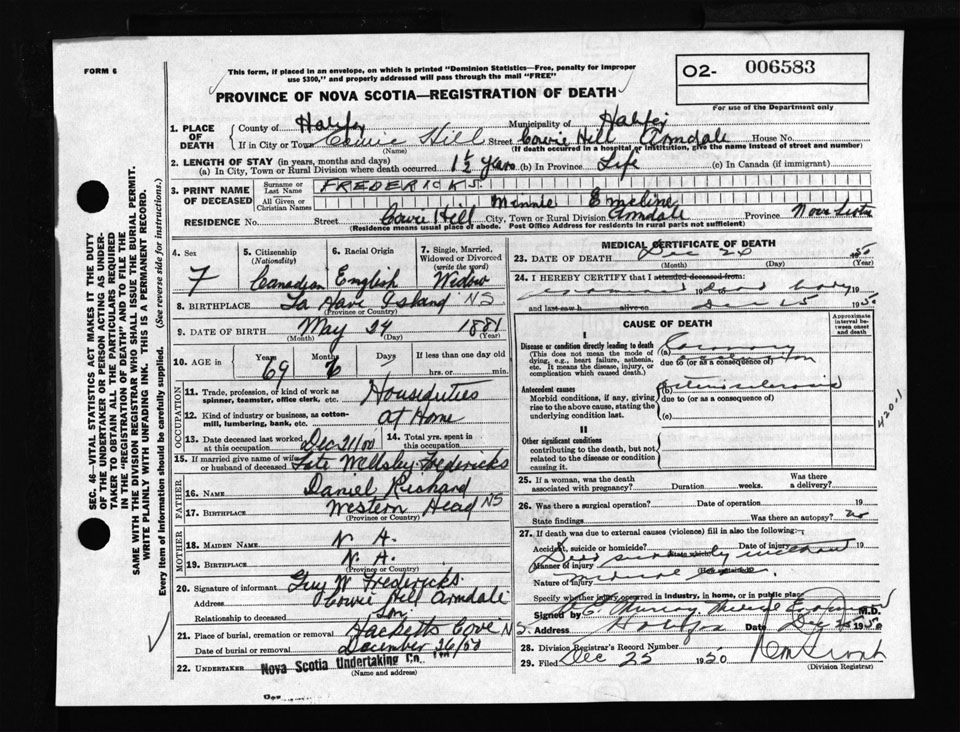 FORM 6
This form, if placed in an envelope, on which is printed "Dominion Statistics—Free, penalty for improper
use $300," and properly addressed will pass through the mail "FREE"
PROVINCE OF NOVA SCOTIA—REGISTRATION OF DEATH
02- 006583
For use of the Department only
1. PLACE OF DEATH
County of Halifax Municipality of Halifax
If in City or Town Cowie Hill Street Cowie Hill Armdale House No.
(Name) (If death occurred in a hospital or institution, give the name instead of street and number)
2. LENGTH OF STAY (in years, months and days)
(a) In City, Town or Rural Division where death occurred 1½ years (b) In Province Life (c) In Canada (if immigrant)
3. PRINT NAME OF DECEASED
Surname or Last Name FREDERICKS.
All Given or Christian Names Minnie Emeline
RESIDENCE No. Street Cowie Hill City, Town or Rural Division Armdale Province Nova Scotia
(Residence means usual place of abode. Post Office Address for residents in rural parts not sufficient)
4. Sex F
5. Citizenship (Nationality) Canadian
6. Racial Origin English
7. Single, Married, Widowed or Divorced (write the word) Widow
8. BIRTHPLACE La Have Island NS
(Province or Country)
9. DATE OF BIRTH May 24 1881
(Month) (Day) (Year)
10. AGE in Years 69 Months Days If less than one day old
hrs. or min.
OCCUPATION
11. Trade, profession, or kind of work as
spinner, teamster, office clerk, etc. Houseduties
12. Kind of industry or business, as cotton-
mill, lumbering, bank, etc. At Home
13. Date deceased last worked at this occupation Dec 21/50
14. Total yrs. spent in this occupation
15. If married give name of wife
or husband of deceased Late Wellsley Fredericks
FATHER
16. NAME Daniel Richard
17. BIRTHPLACE Western Head NS
(Province or Country)
MOTHER
18. MAIDEN NAME N. A.
19. BIRTHPLACE N. A.
(Province or Country)
20. Signature of informant Guy W. Fredericks.
Address Cowie Hill Armdale
Relationship to deceased Son
21. Place of burial, cremation or removal Hacketts Cove NS
Date of burial or removal December 26/50
22. UNDERTAKER Nova Scotia Undertaking Co.
(Name and address)
MEDICAL CERTIFICATE OF DEATH
23. DATE OF DEATH Dec
(Month) (Day) (Year)
24. I HEREBY CERTIFY that I attended deceased from:
19 dead body 19
and last saw h alive on Dec 25 1950
CAUSE OF DEATH
Approximate interval between onset and death
I
Disease or condition directly leading to death
(This does not mean the mode of
dying, e.g., heart failure, asthenia,
etc. It means the disease, injury, or
complication which caused death.)
(a) Coronary
due to (or as a consequence of)
Antecedent causes
Morbid conditions, if any, giving
rise to the above cause, stating the
underlying condition last.
(b) Arteriosclerosis
due to (or as a consequence of)
(c)
420-1
II
Other significant conditions
contributing to the death, but not
related to the disease or condition
causing it.
25. If a woman, was the death
associated with pregnancy? Duration weeks. Was there a delivery?
26. Was there a surgical operation? Date of operation 19
State findings Was there an autopsy? no
27. If death was due to external causes (violence) fill in also the following:
Accident, suicide or homicide? Date of injury 19
Died suddenly without
Manner of injury
medical
Nature of injury
Specify whether injury occurred in industry, in home, or in public place
Signed by Murray Medical Examiner M.D.
Address Halifax Date Dec 25 1950
28. Division Registrar's Record Number
29. Filed Dec 25 1950
(Division Registrar)
SEC. 46—VITAL STATISTICS ACT MAKES IT THE DUTY
OF THE UNDERTAKER OR PERSON ACTING AS UNDER-
TAKER TO OBTAIN ALL THE PARTICULARS REQUIRED
IN THE "REGISTRATION OF DEATH" AND TO FILE THE
SAME WITH THE DIVISION REGISTRAR WHO SHALL ISSUE THE BURIAL PERMIT.
WRITE PLAINLY WITH UNFADING INK. THIS IS A PERMANENT RECORD.
Every item of information should be carefully supplied. (See reverse side for instructions.)